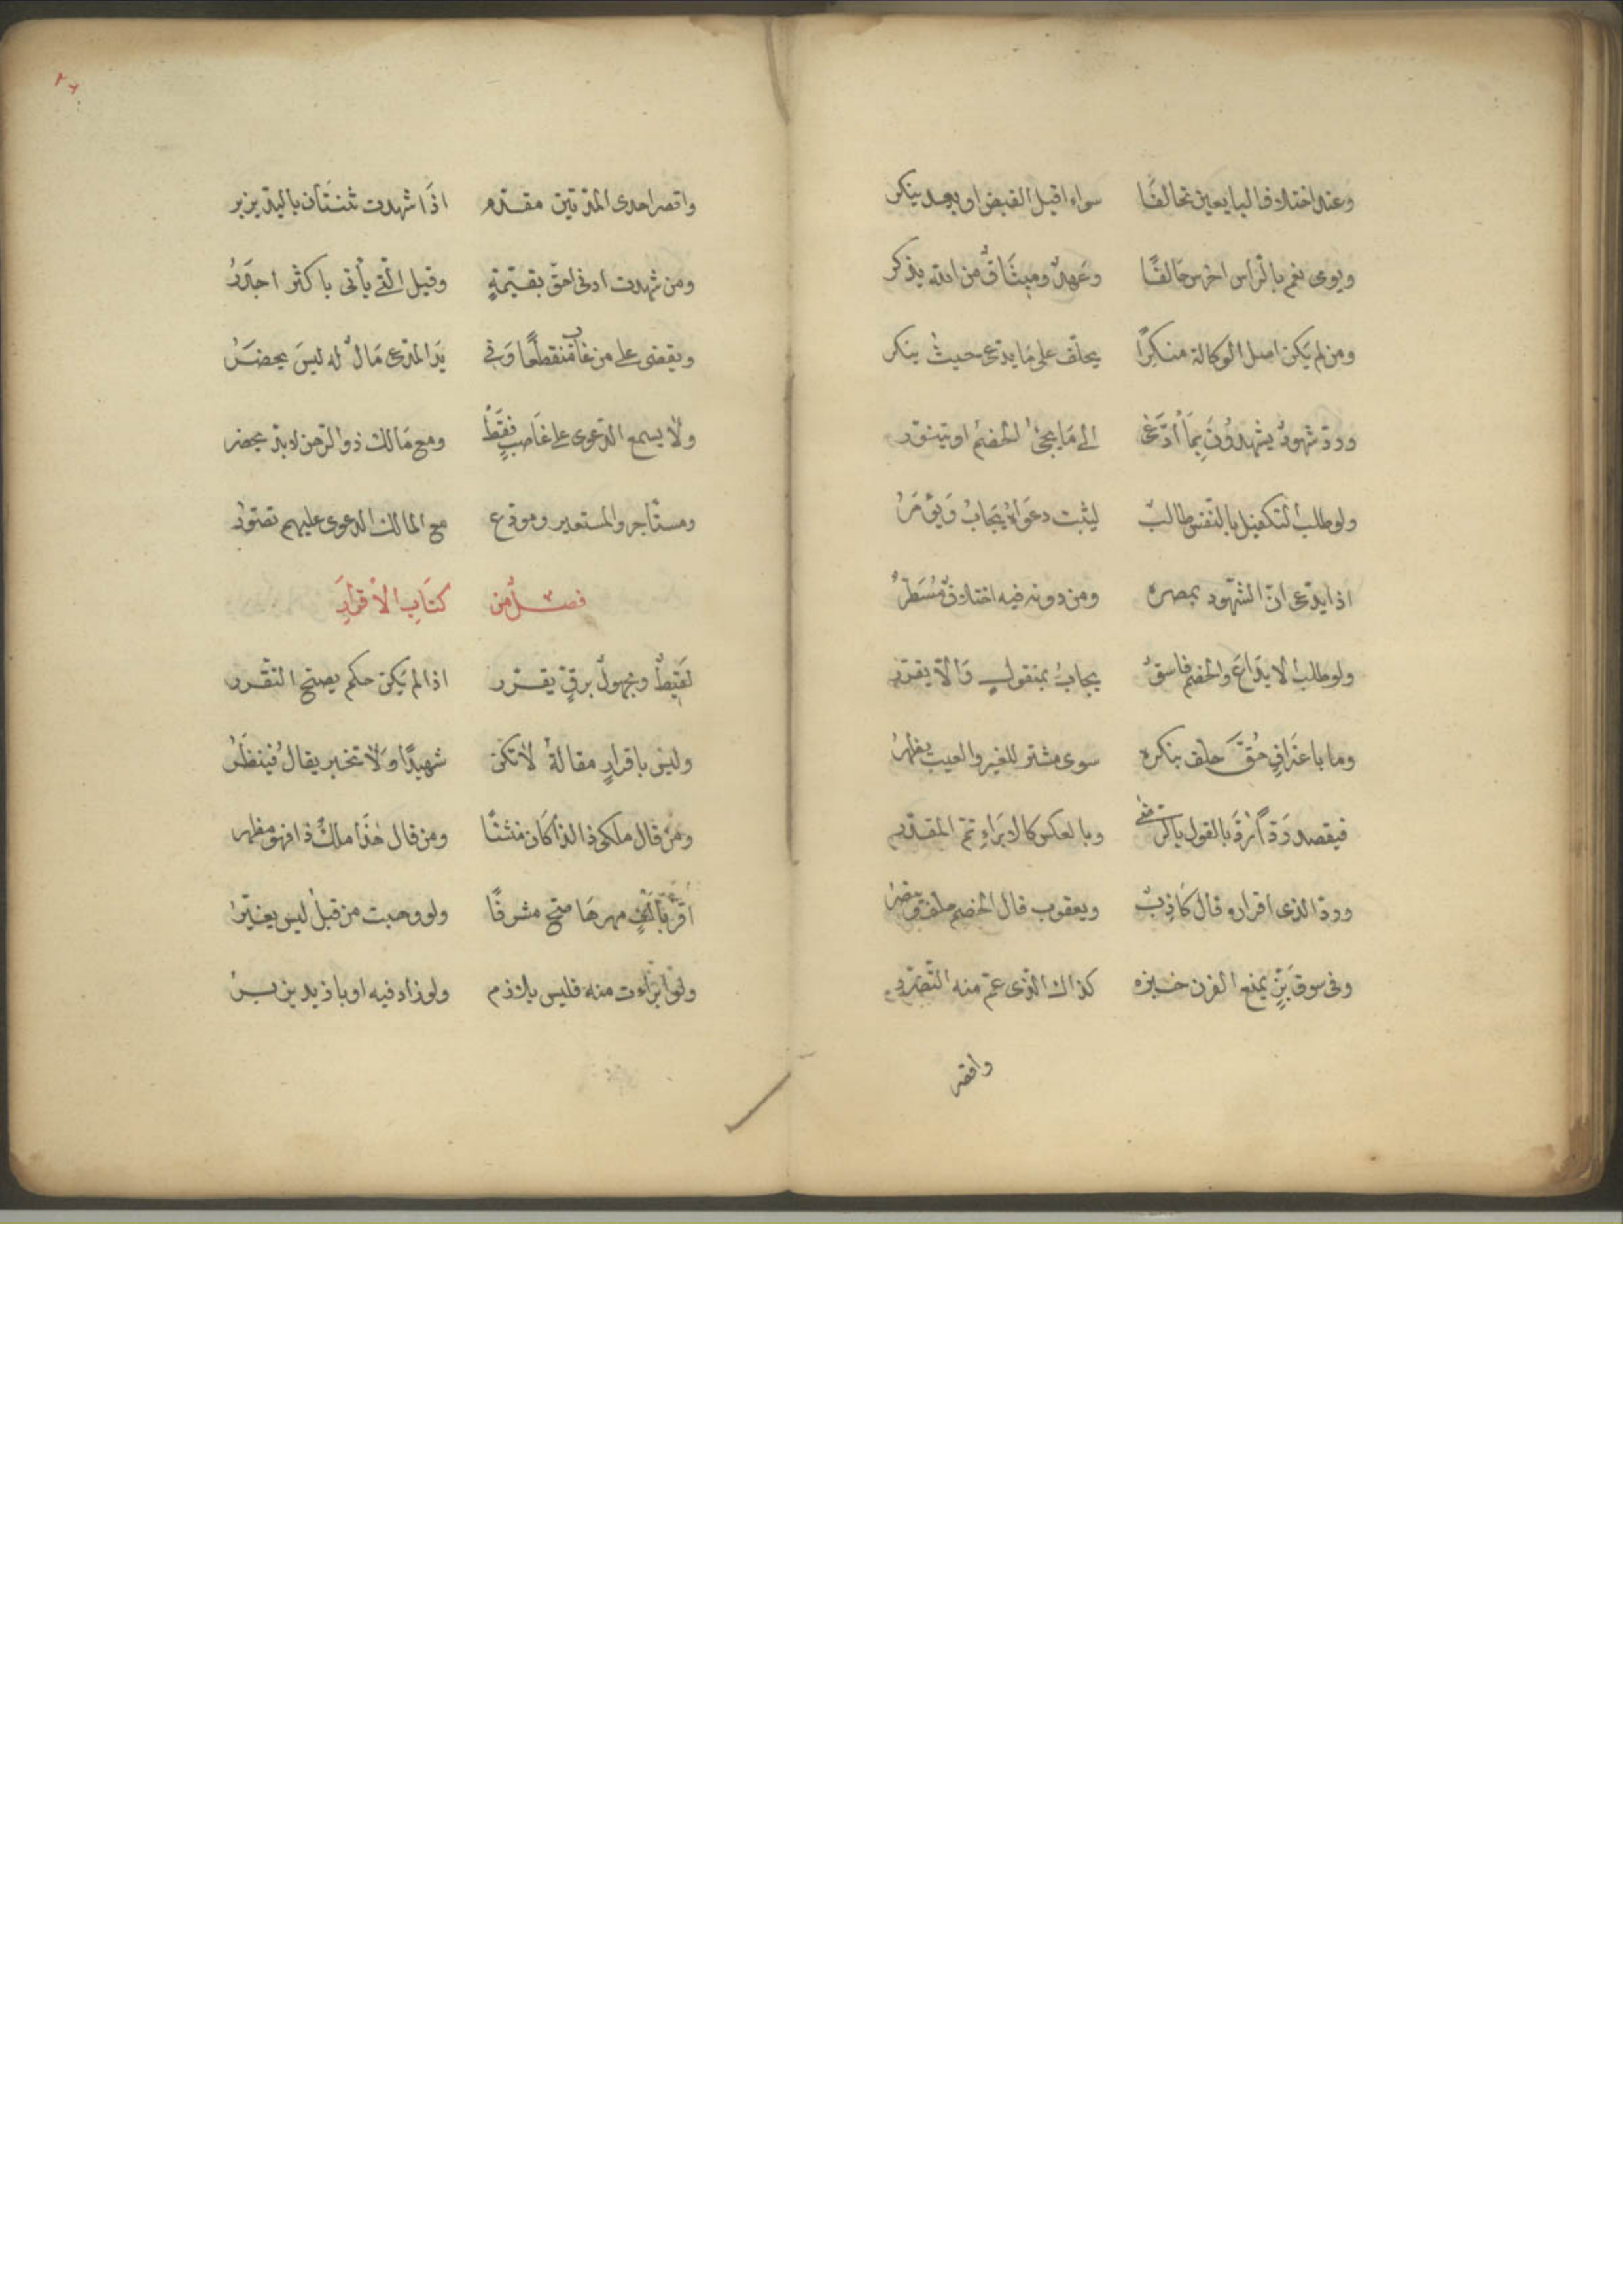 وعند اختلاف البايعين تحالفا سواء اقبل القبض او بعد ينكر
ويومى نعم بالراس اخرس حالفا وعهد وميثاق من الله يذكر
ومن لم يكن اصل الوكالة منكرا يحلف على ما يدعى حيث ينكر
وردّ شهود يشهدون بما ادّعى الى ما يجئ الخصم او
ولو طلب التكفيل بالنفس طالب ليثبت دعواه يجاب ويؤمر
اذا يدّعى انّ الشهود بمصره ومن دونه فيه اختلاف مسطّر
ولو طلب الايداع والخصم فاسق يجاب بمنقول والّا يقرّر
وما باعترافٍ حقّ حلف ينكره سوى مشتر للغير والعيب يظهر
فيقصد ردّ بالقول بالرضى وبالعكس كالابراء تمّ المقدّر
وردّ الذى اقراره قال كاذب ويعقوب قال الخصم حلف
وفى سوق بزّ يمنع الفرن خبزه كذاك الذى عمّ منه التضرّر
واقصر
واقصر احدى المدّتين مقدّم اذا شهدت ثنتان باليد يزبر
ومن شهدت ادنى احقّ بقيمةٍ وقيل التى يأتى باكثر اجدر
ويقضى على من غاب منقطعا وفى يد المدّعى مال له ليس يحضر
ولا يسمع الدّعوى على غاصب فقط ومع مالك ذو الرّهن لابدّ يحضر
ومستأجر والمستعير ومودع مع المالك الدعوى عليهم تصوّر
فصل من كتاب الاقرار
لقيط ومجهول برقّ يقرّر اذا لم يكن حكم يصحّ التقرر
وليس باقرار مقالة لا تكن شهيدا ولا تخبر يقال فينظر
ومن قال ملكى ذا لذا كان منشئا ومن قال هذا ملك ذا فهو مظهر
اقرّ بالف مهرها صحّ مشرفا ولو وهبت من قبل ليس يغيّر
ولو ابراءت منه فليس بلازم ولو زاد فيه او